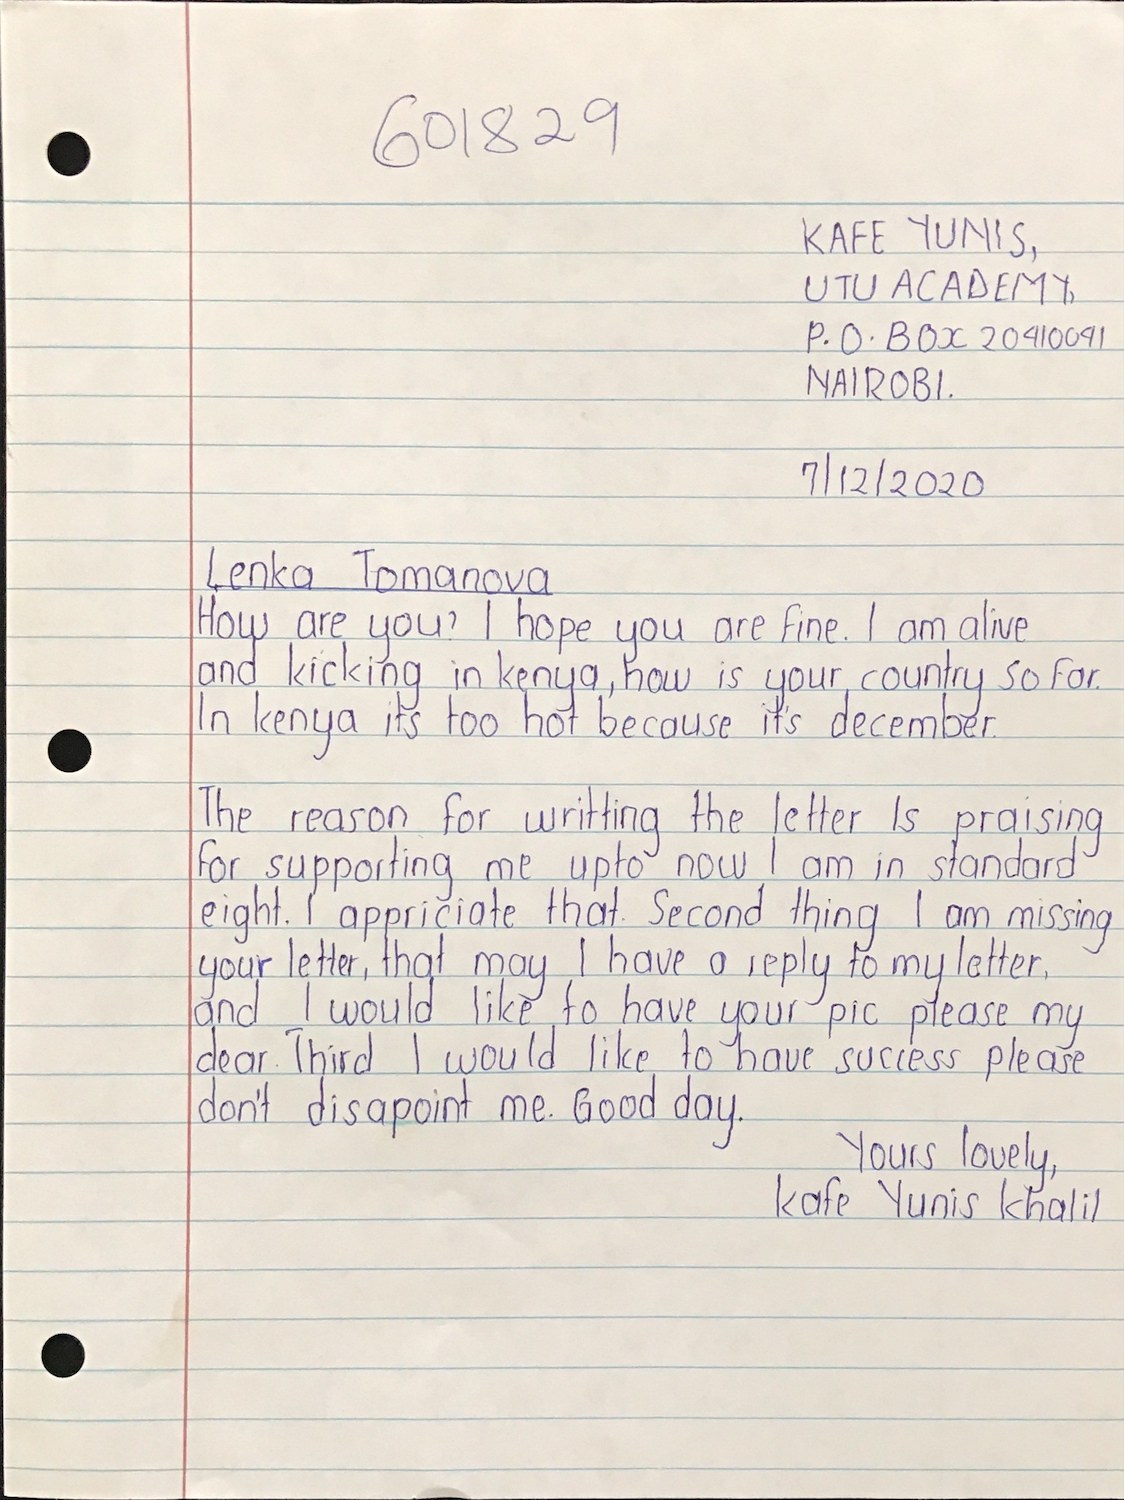 601829
KAFE YUNIS,
UTU ACADEMY,
P.O. BOX 20410041
NAIROBI.
7/12/2020
Lenka Tomanova
How are you? I hope you are fine. I am alive
and kicking in kenya, how is your country so far.
In kenya it's too hot because it's december.
The reason for writting the letter Is praising
for supporting me upto now I am in standard
eight. I appriciate that. Second thing I am missing
your letter, that may I have a reply to my letter,
and I would like to have your pic please my
dear. Third I would like to have success please
don't disapoint me. Good day.
Yours lovely,
kafe Yunis khalil